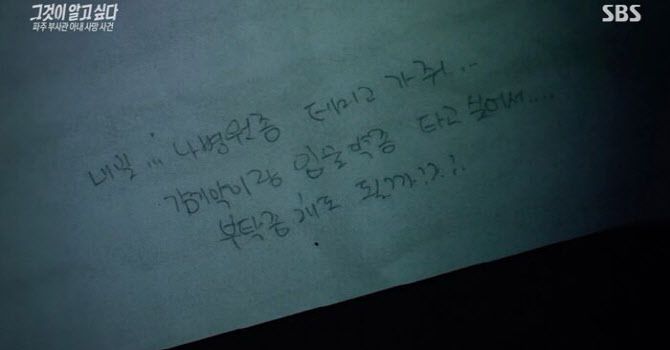 그것이 알고 싶다
SBS
파주 부사관 아내 사망 사건
내일 ... 나 병원좀 데리고 가줘...
감기약이랑 입술약좀 타고싶어서....
부탁좀 해도 될까?.?.